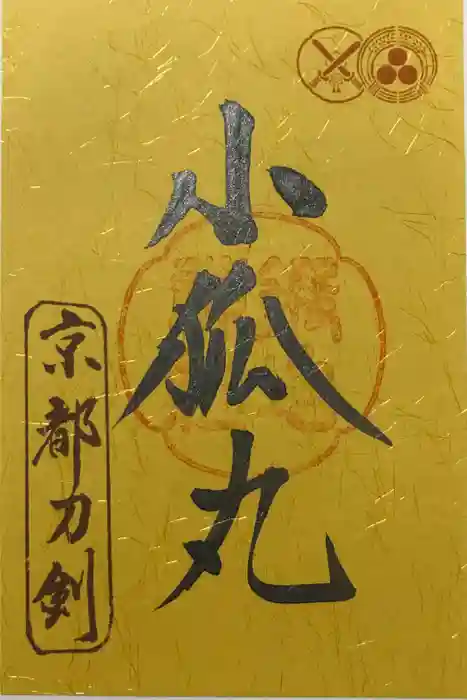 小狐丸
京都刀剣